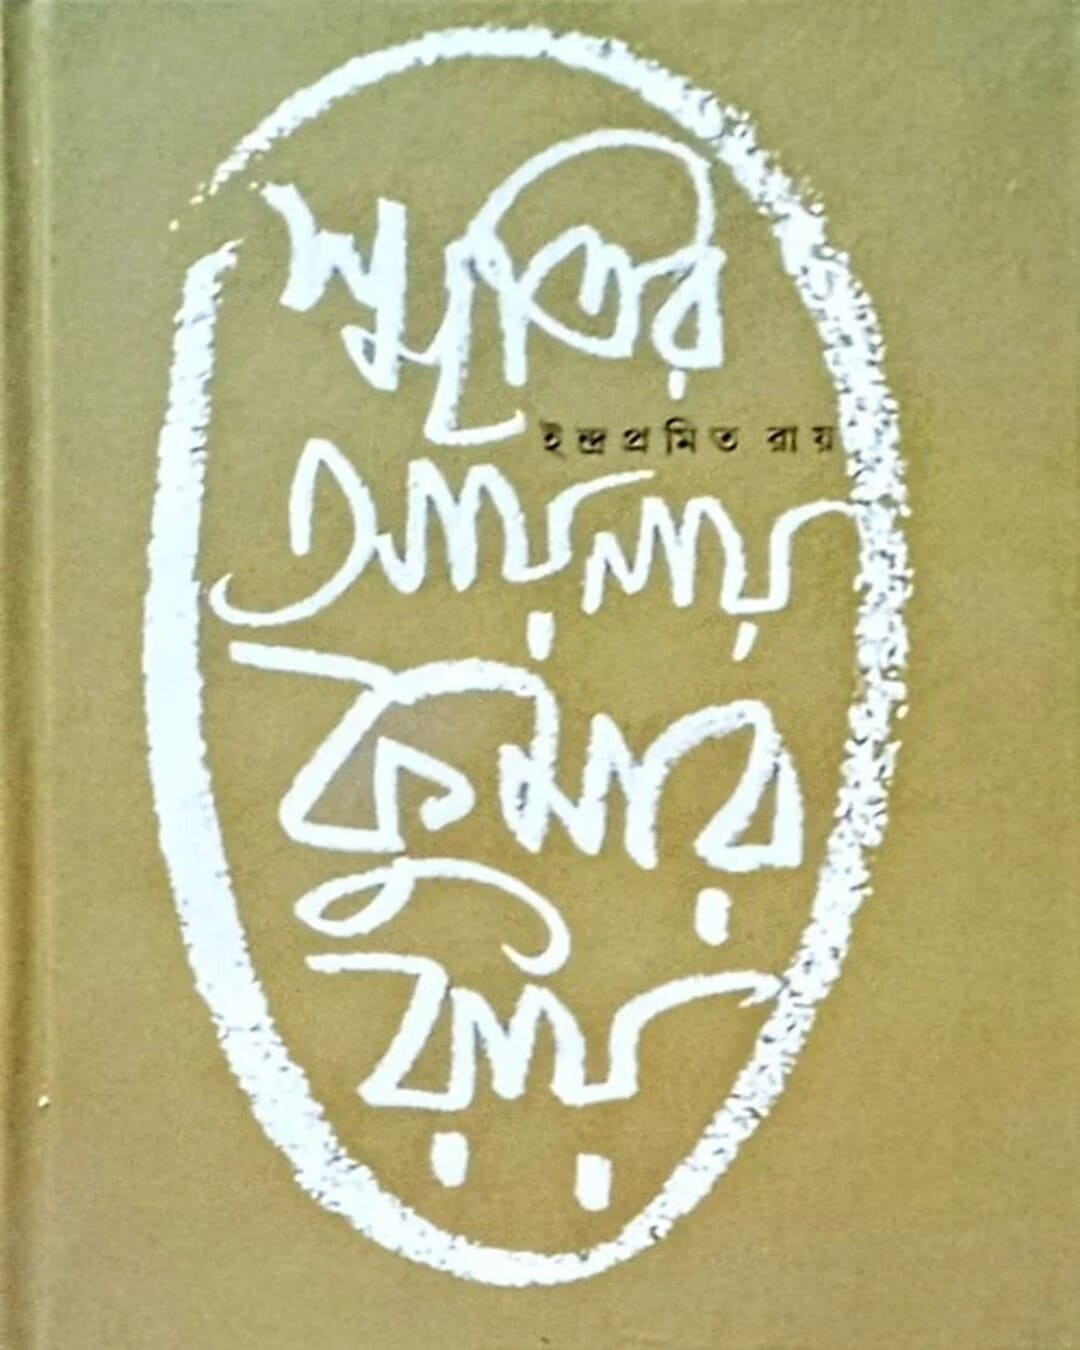 স্মৃতির
ইন্দ্রপ্রমিত রায়
আয়নায়
কুমার
রায়